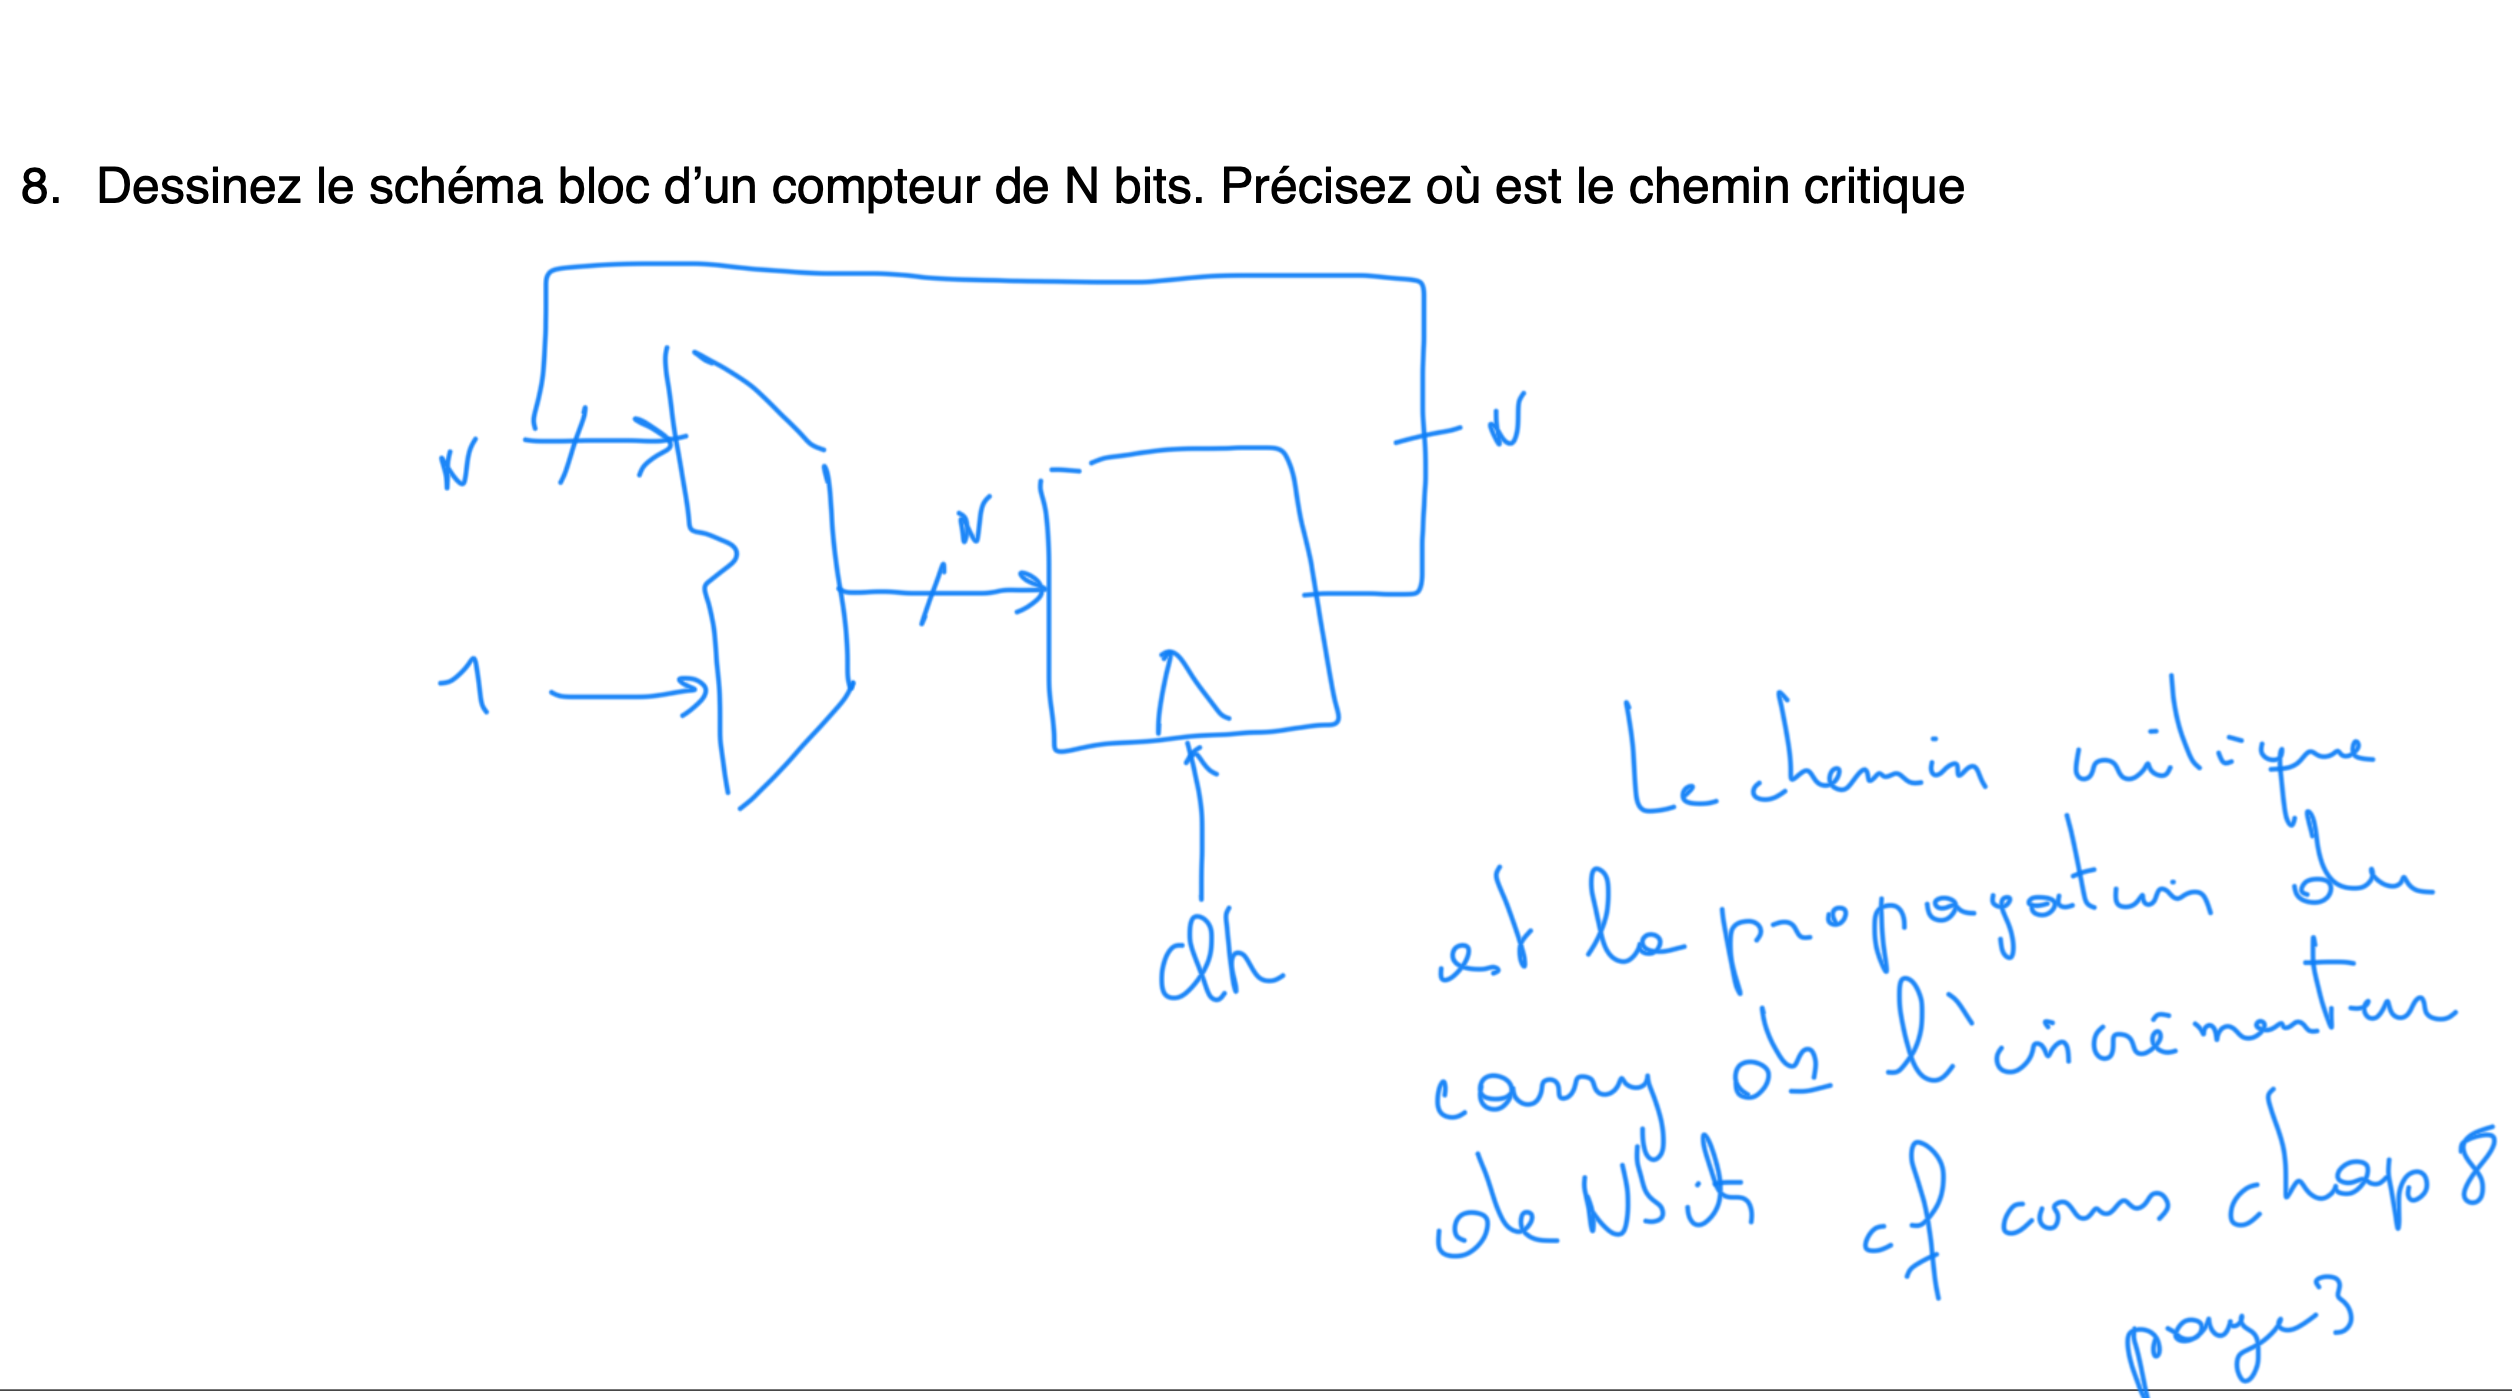 8. Dessinez le schéma bloc d'un compteur de N bits. Précisez où est le chemin critique
N
N
N
1
clk
Le chemin critique
est la propagation du
carry de l'incrémenteur
de N bit cf cours chap 8
page 3